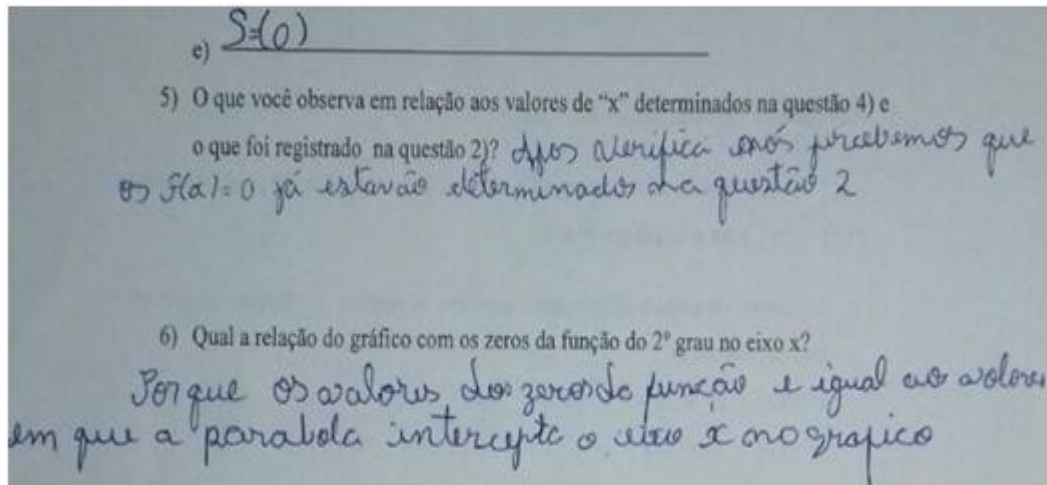 e) S=(0)
5) O que você observa em relação aos valores de “x” determinados na questão 4) e
o que foi registrado na questão 2)? Apos verifica nós percebemos que
os f(x)=0 já estavão determinados na questão 2
6) Qual a relação do gráfico com os zeros da função do 2º grau no eixo x?
Porque os valores dos zeros da função e igual aos valores
em que a parabola intercepta o eixo x no grafico